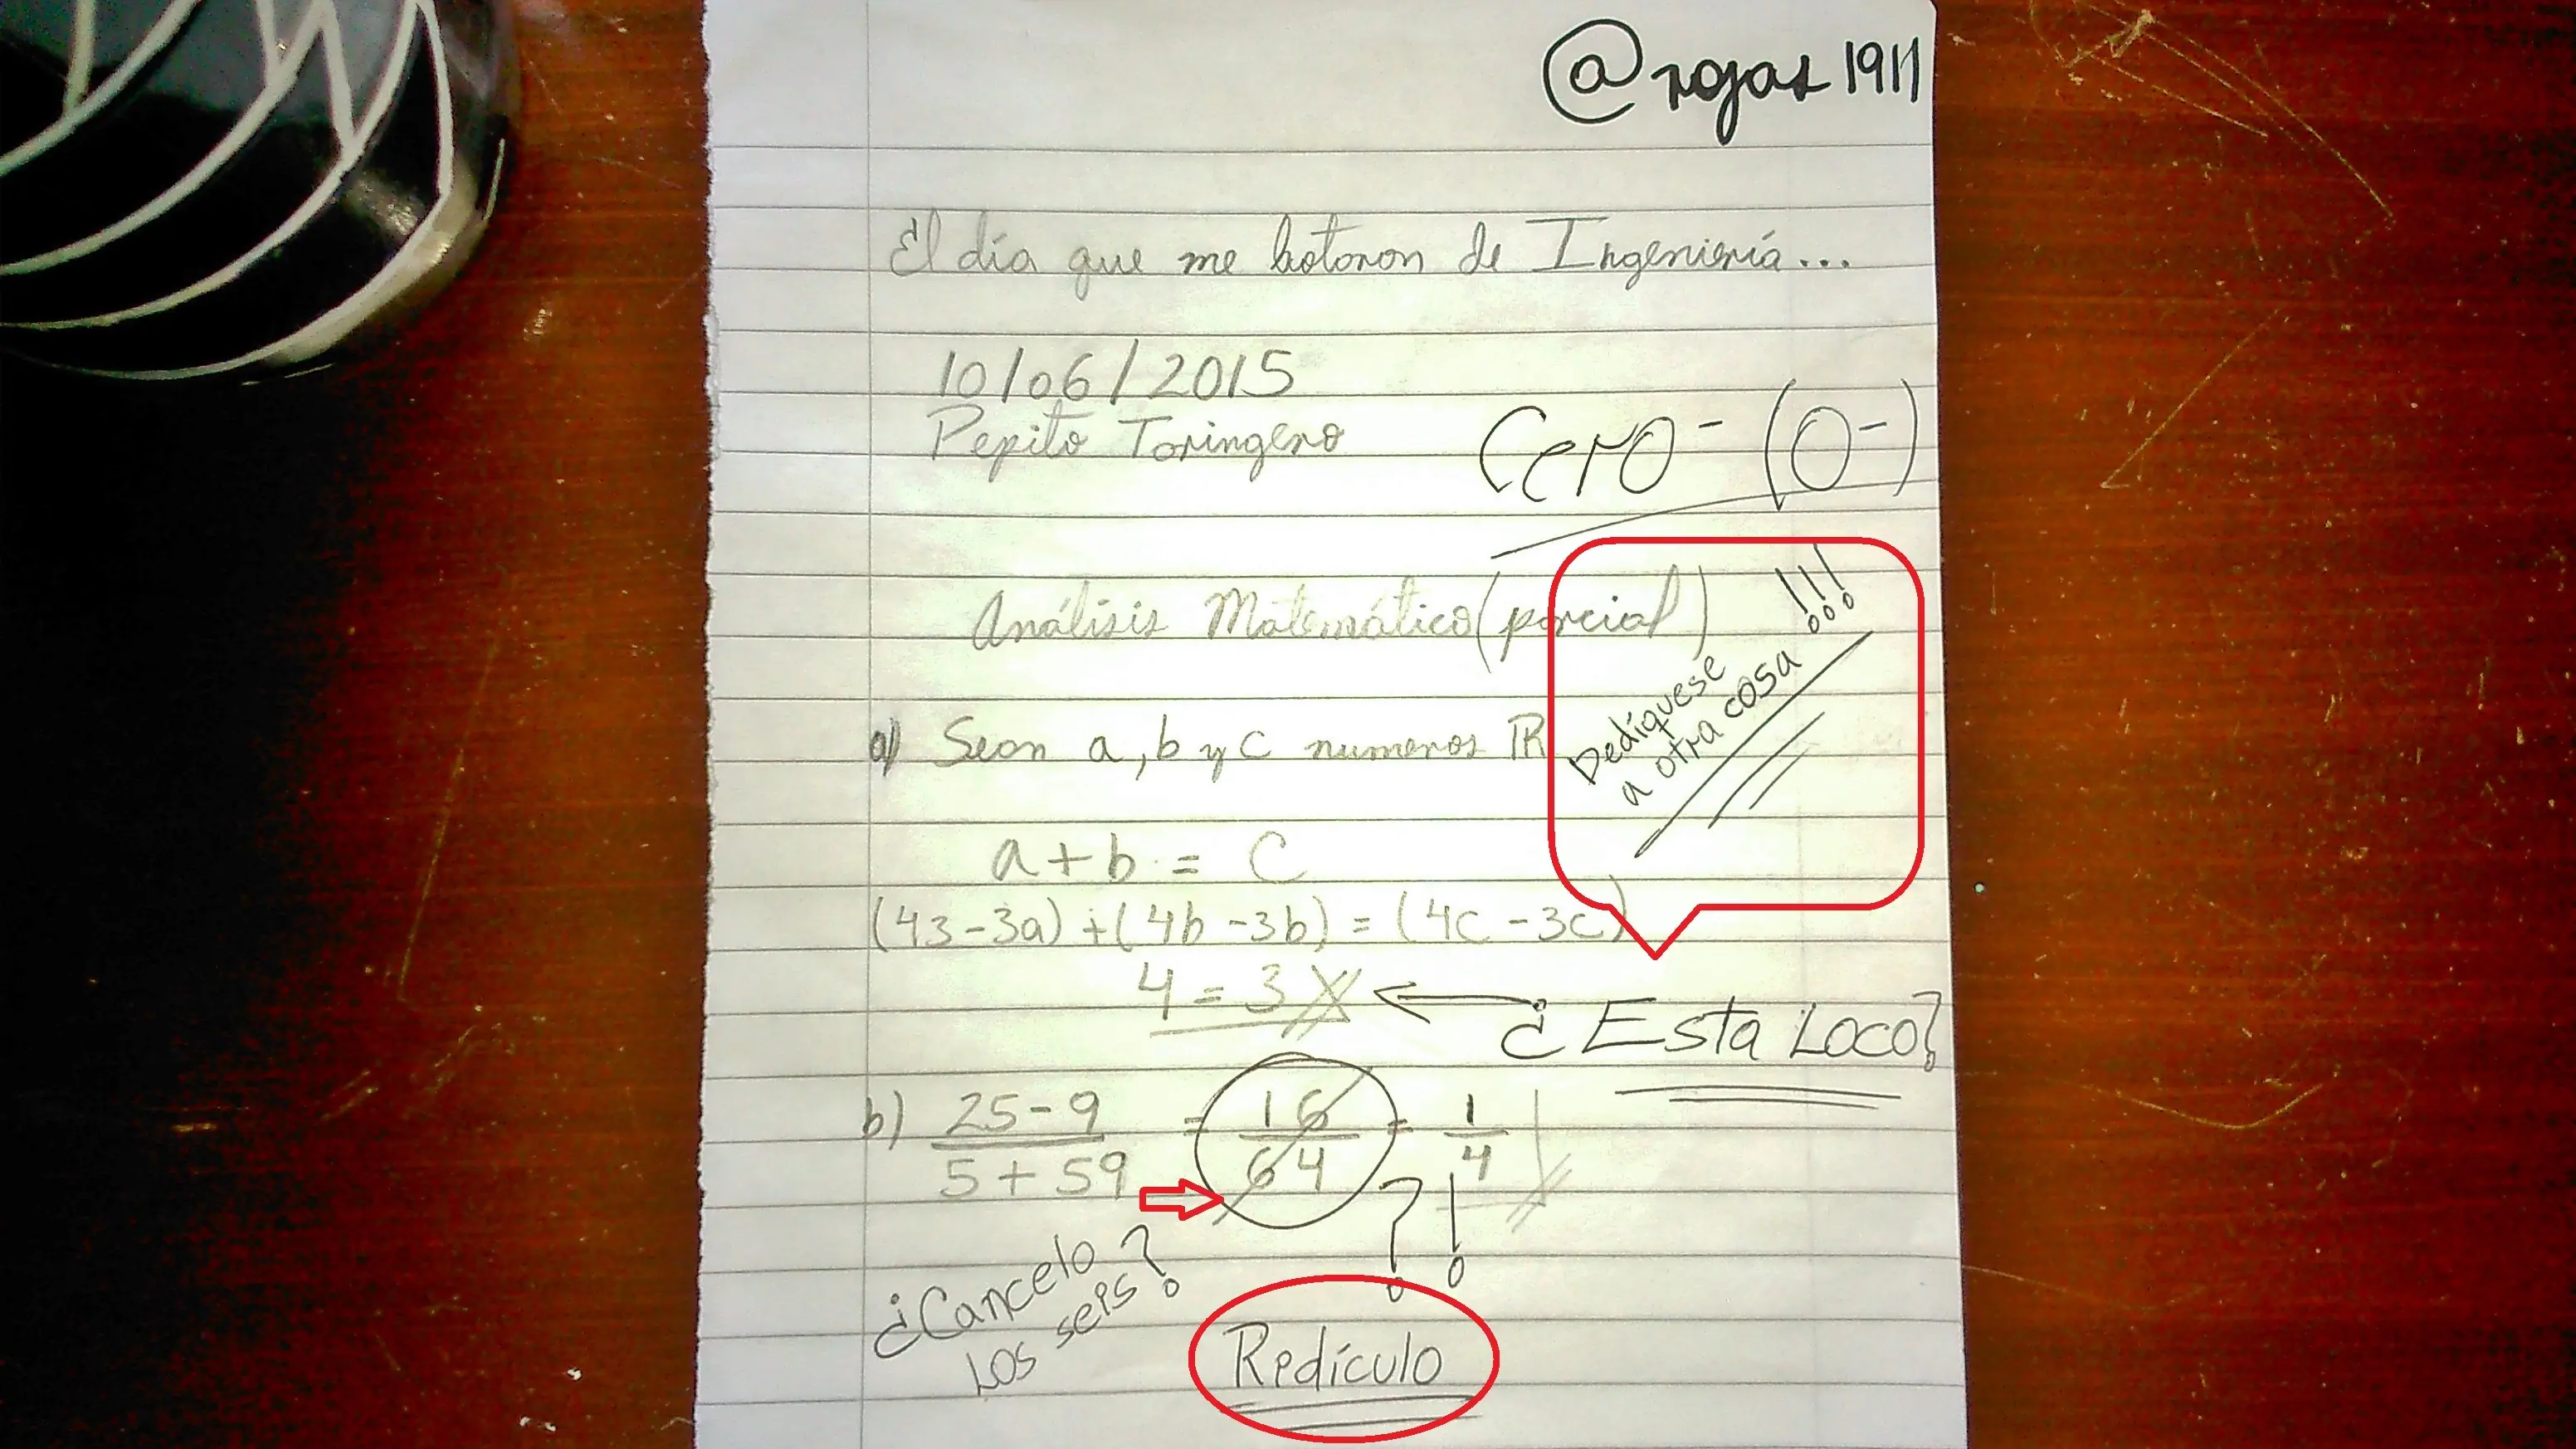 @rojas1911
El día que me botaron de Ingeniería...
10/06/2015
Pepito Toringero
Cero- (0-)
Análisis Matemático (parcial)
Dedíquese
a otra cosa !!!
a) Sean a, b y c numeros ℝ
a + b = C
(43-3a) + (4b-3b) = (4c-3c)
4 = 3
¿Esta Loco?
b) 25-9 / 5+59 = 16 / 64 = 1 / 4
?!
¿Cancelo
Los seis?
Redículo